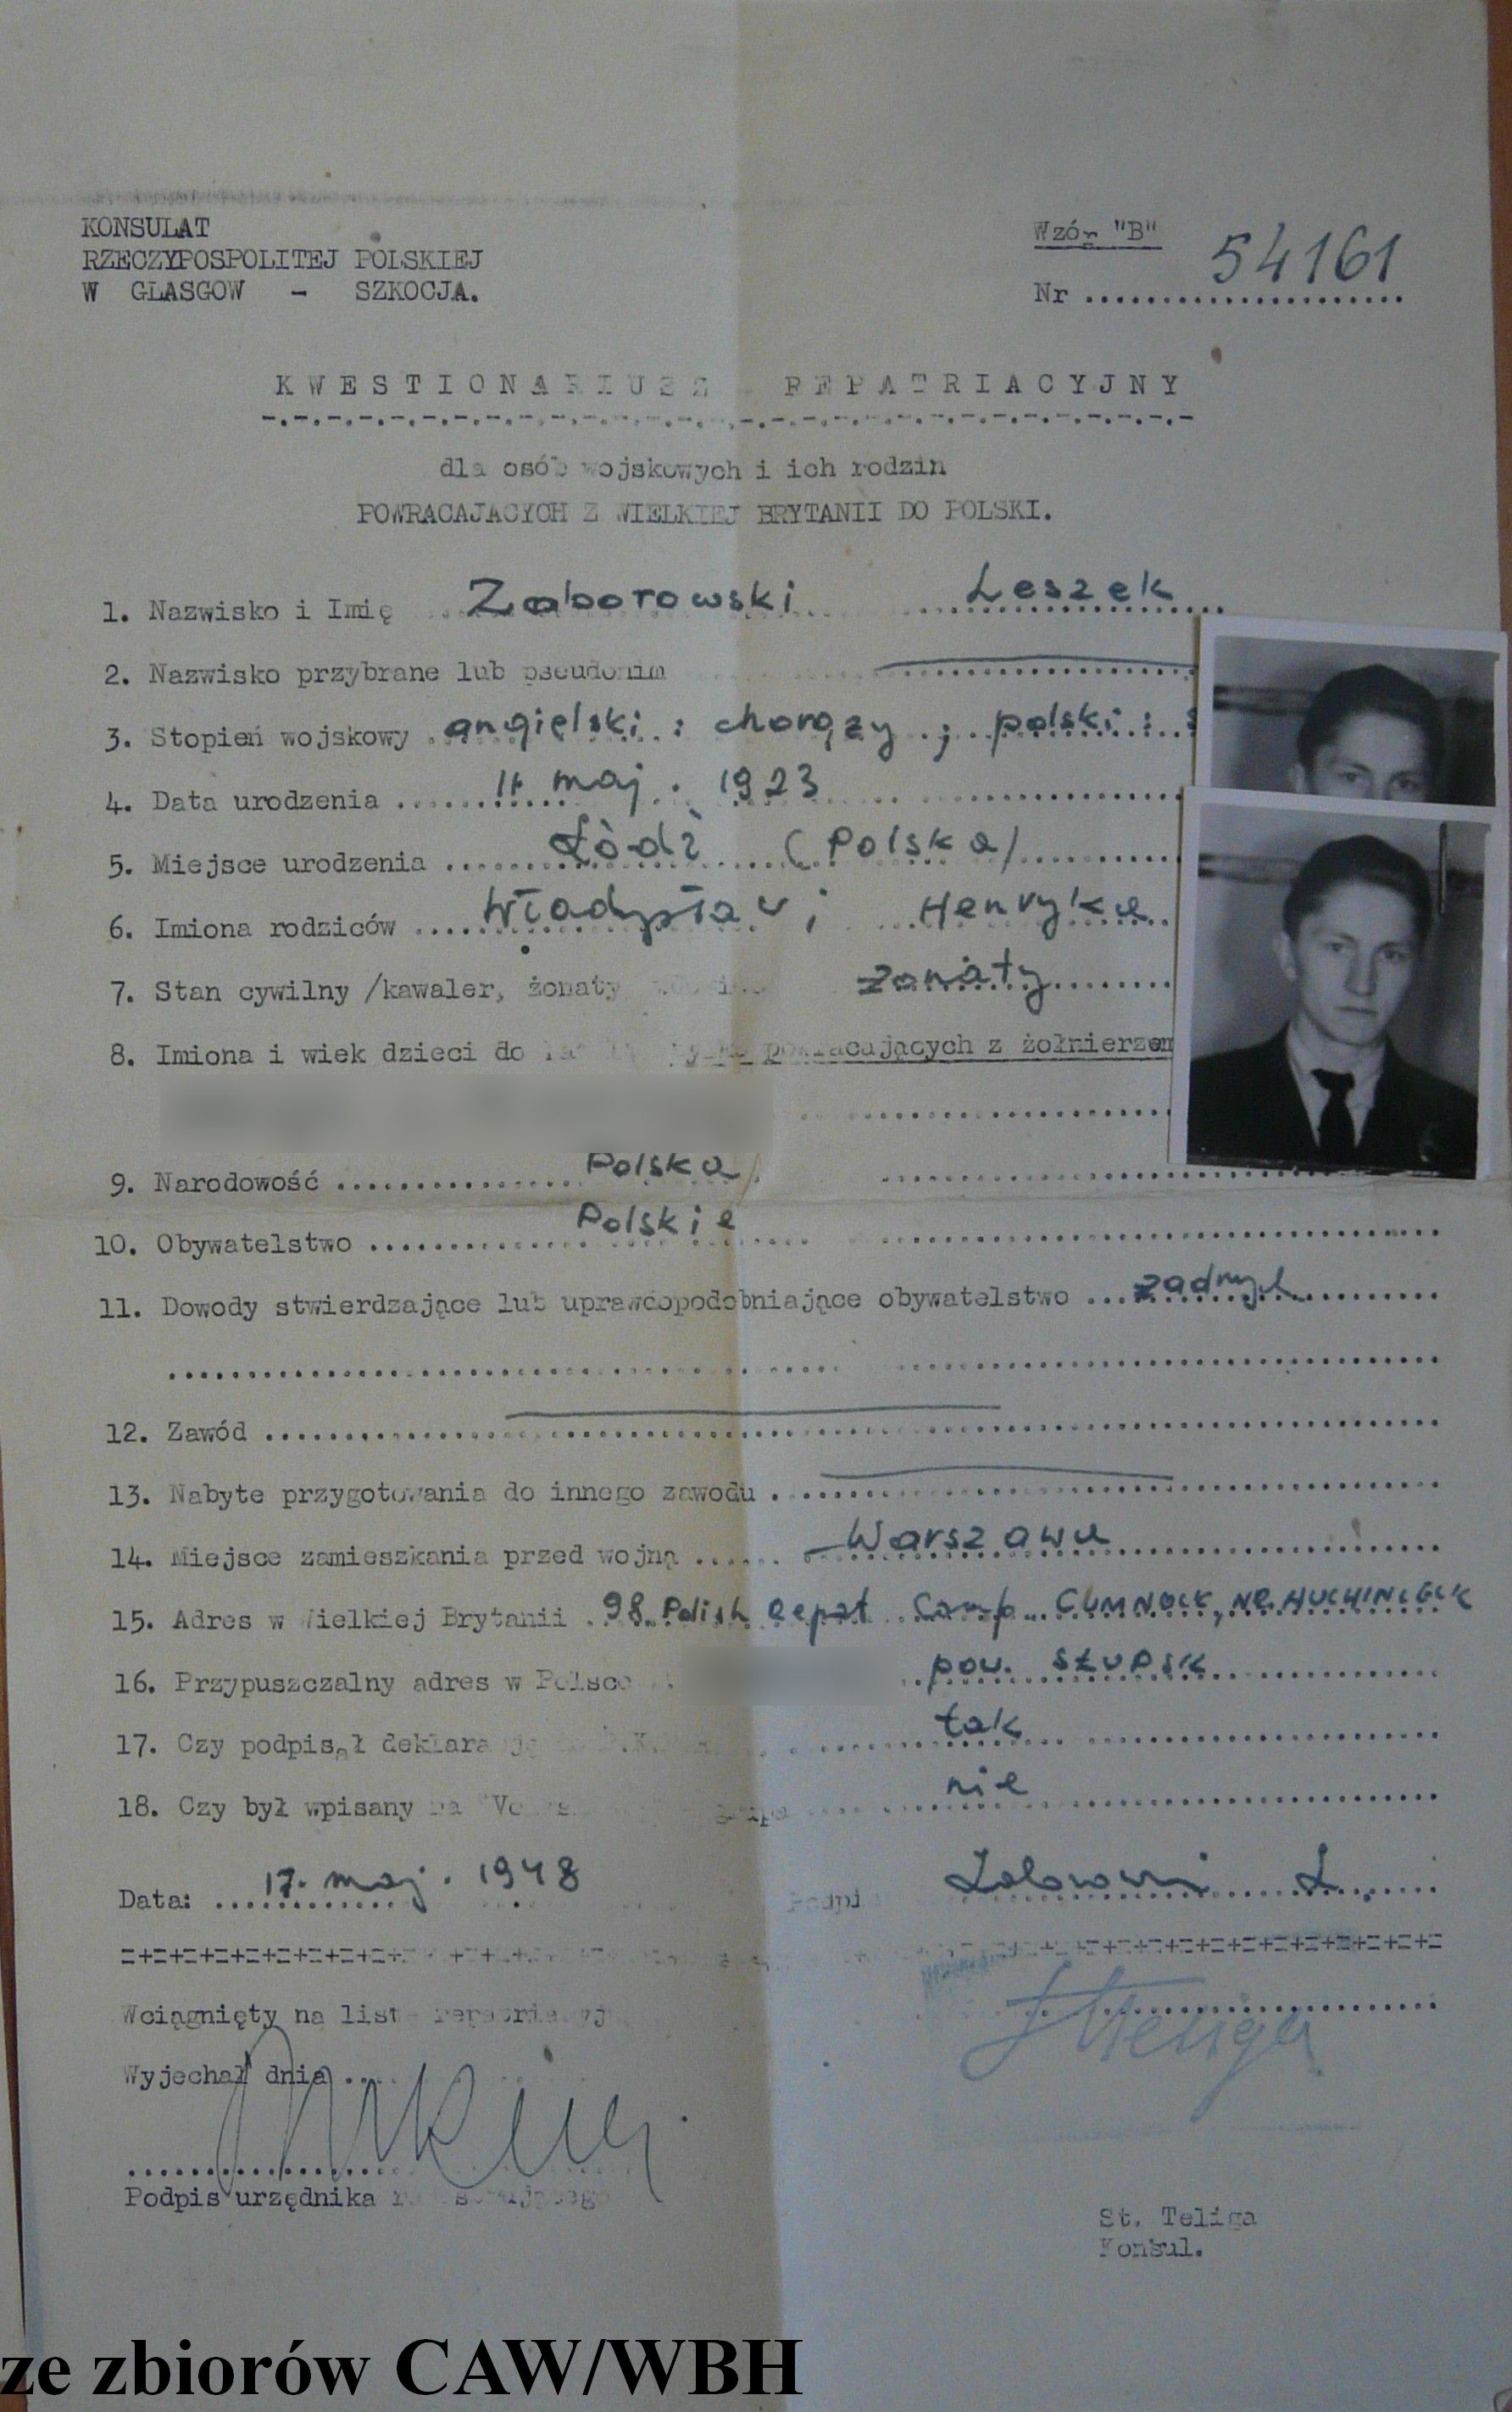 KONSULAT
RZECZYPOSPOLITEJ POLSKIEJ
W GLASGOW - SZKOCJA.
Wzór "B"
Nr 54161
KWESTIONARIUSZ REPATRIACYJNY
dla osób wojskowych i ich rodzin
POWRACAJACYCH Z WIELKIEJ BRYTANII DO POLSKI.
1. Nazwisko i Imię Zaborowski Leszek
2. Nazwisko przybrane lub pseudonim
3. Stopień wojskowy angielski : chorąży ; polski :
4. Data urodzenia 11 maj. 1923
5. Miejsce urodzenia Łódź (Polska)
6. Imiona rodziców Władysław i Henryka
7. Stan cywilny /kawaler, żonaty żonaty
8. Imiona i wiek dzieci do powracających z żołnierzem
9. Narodowość Polska
10. Obywatelstwo Polskie
11. Dowody stwierdzające lub uprawdopodobniające obywatelstwo żadnych
12. Zawód
13. Nabyte przygotowania do innego zawodu
14. Miejsce zamieszkania przed wojną Warszawa
15. Adres w Wielkiej Brytanii 98. Polish Repat Camp. CUMNOCK,
16. Przypuszczalny adres w Polsce pow. SŁUPSK
17. Czy podpisał deklarację tak
18. Czy był wpisany na nie
Data: 17. maj. 1948
=+=+=+=+=+=+=+=+=+=
Wciągnięty na listę
Wyjechał dnia
Podpis urzędnika
Teliga
St. Teliga
Konsul.
ze zbiorów CAW/WBH